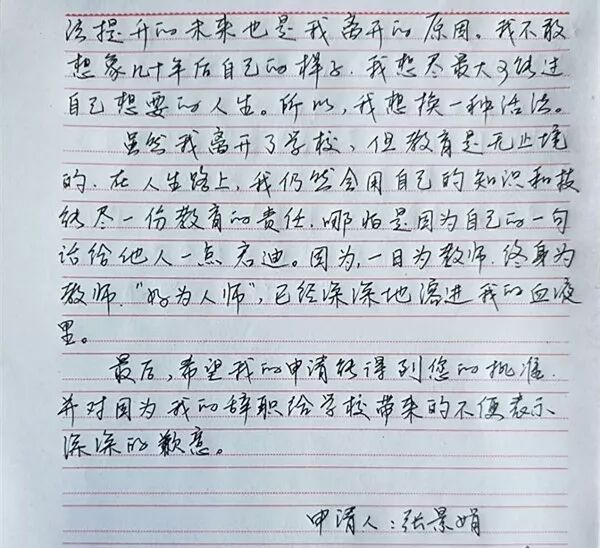 法提升的未来也是我离开的原因。我不敢
想象几十年后自己的样子，我想尽最大了能过
自己想要的人生。所以，我想换一种活法。
虽然我离开了学校，但教育是无止境
的。在人生路上，我仍然会用自己的知识和技
能尽一份教育的责任，哪怕是因为自己的一句
话给他人一点启迪。因为，一日为教师，终身为
教师，“好为人师”，已经深深地溶进我的血液
里。
最后，希望我的申请能得到您的批准，
并对因为我的辞职给学校带来的不便表示
深深的歉意。
申请人：张景娟